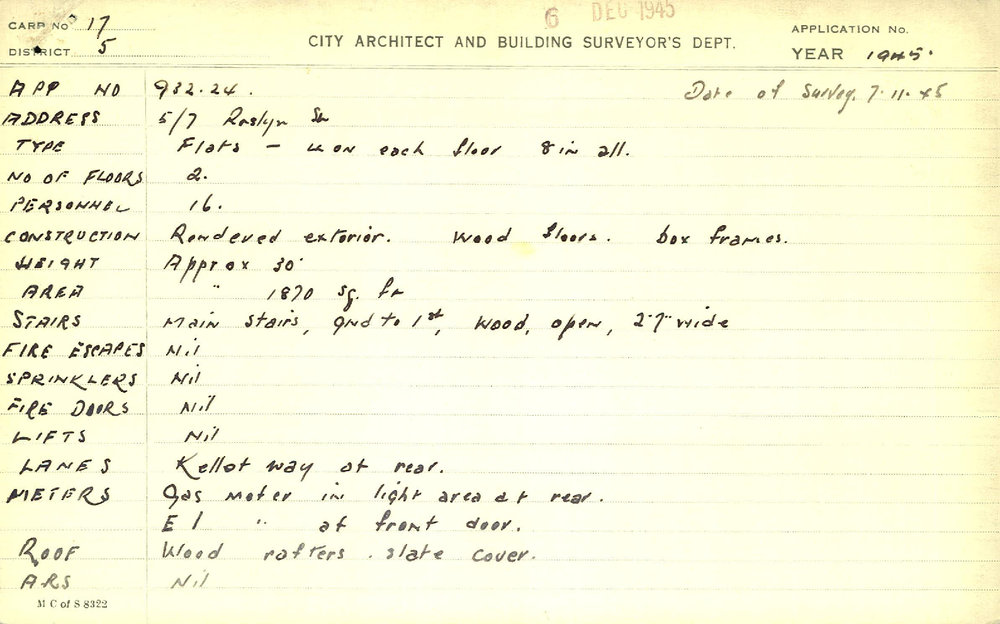 6 DEC 1945
CARD No 17
DISTRICT 5
CITY ARCHITECT AND BUILDING SURVEYOR'S DEPT.
APPLICATION No.
YEAR 1945.
APP NO 932.24.
Date of Survey. 7.11.45
ADDRESS 5/7 Roslyn St
TYPE Flats - 4 on each floor 8 in all.
NO OF FLOORS 2.
PERSONNEL 16.
CONSTRUCTION Rendered exterior. Wood floors. box frames.
HEIGHT Approx 30'
AREA " 1870 sq. ft
STAIRS Main stairs, gnd to 1st, wood, open, 2'7" wide
FIRE ESCAPES Nil
SPRINKLERS Nil
FIRE DOORS Nil
LIFTS Nil
LANES Kellot way at rear.
METERS Gas meter in light area at rear.
El " at front door.
ROOF Wood rafters. slate cover.
ARS Nil
M C of S 8322